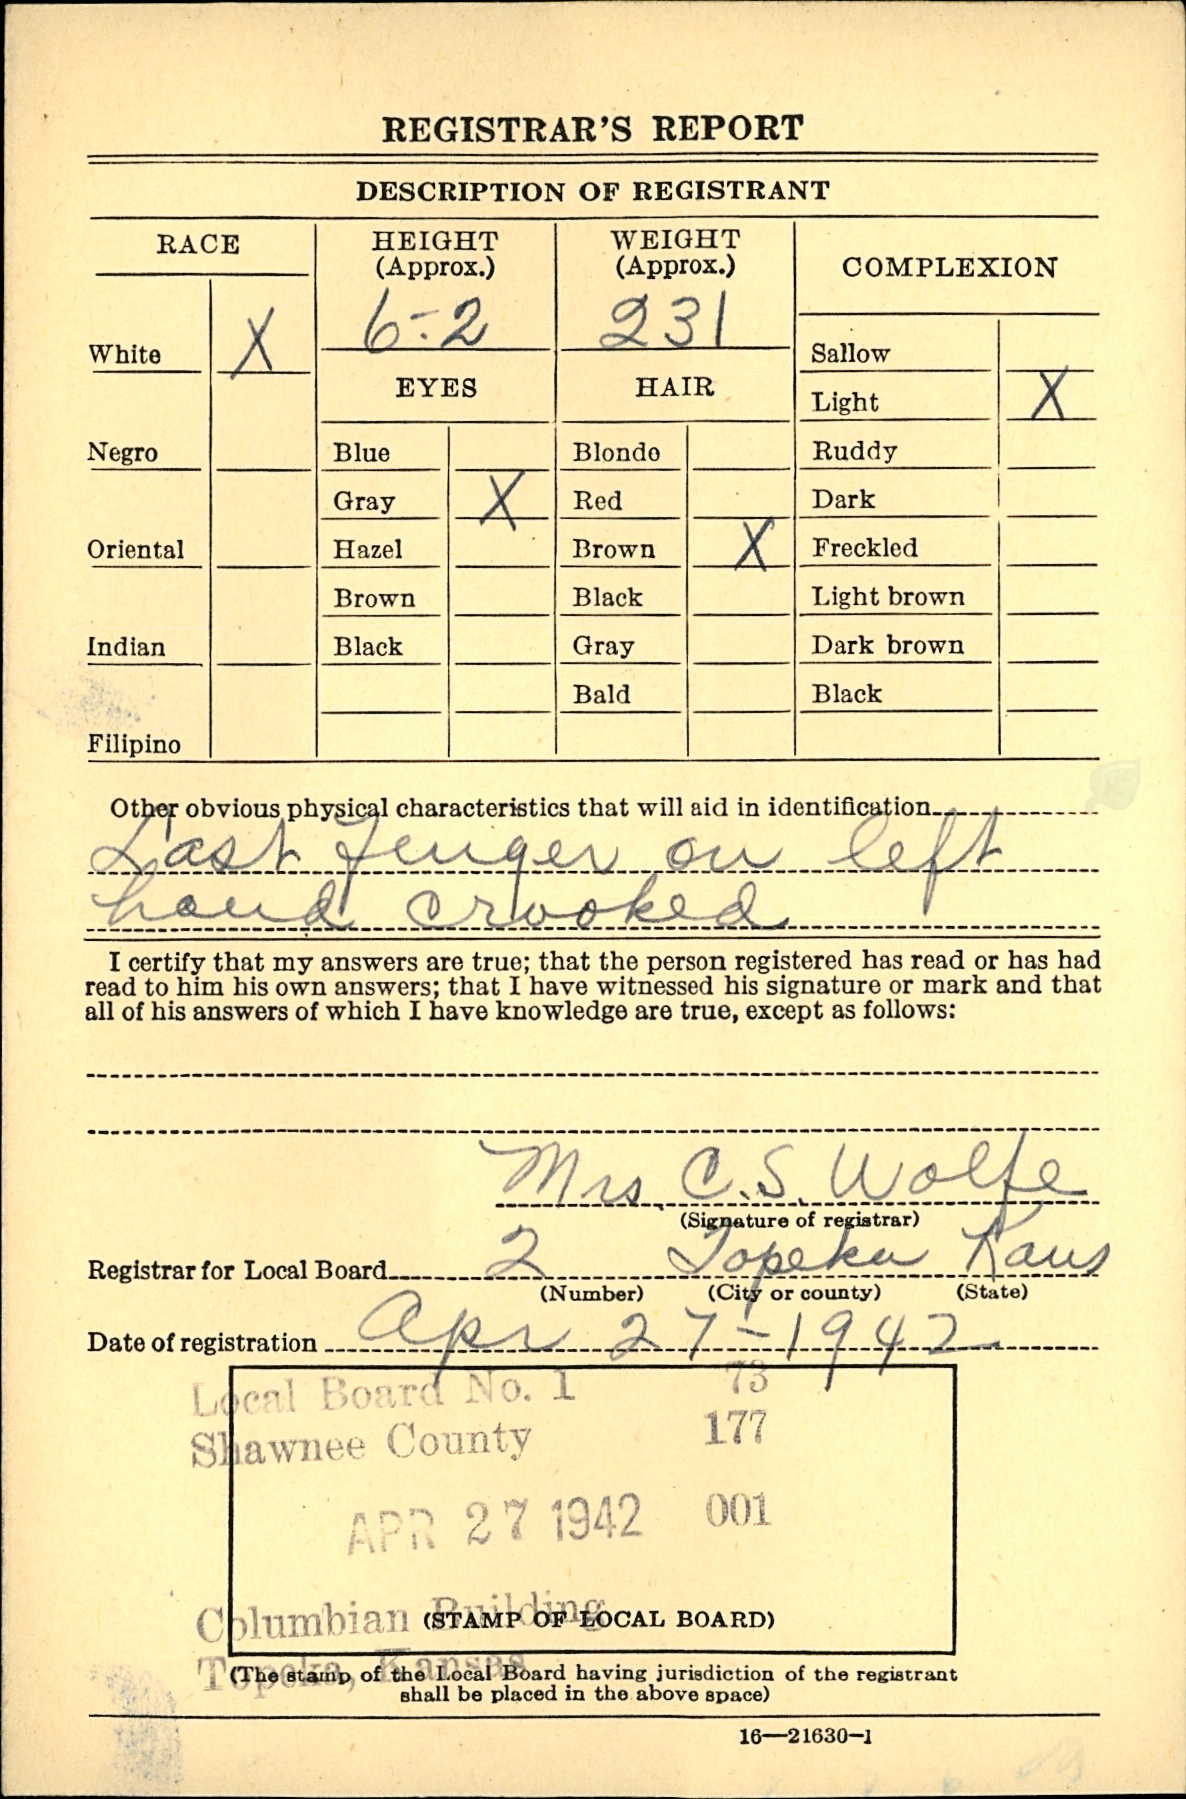 REGISTRAR'S REPORT
DESCRIPTION OF REGISTRANT
RACE
HEIGHT
(Approx.)
WEIGHT
(Approx.)
COMPLEXION
6-2
231
White X
Sallow
EYES
HAIR
Light X
Negro
Blue
Blonde
Ruddy
Gray X
Red
Dark
Oriental
Hazel
Brown X
Freckled
Brown
Black
Light brown
Indian
Black
Gray
Dark brown
Bald
Black
Filipino
Other obvious physical characteristics that will aid in identification
Last Finger on left
hand crooked
I certify that my answers are true; that the person registered has read or has had
read to him his own answers; that I have witnessed his signature or mark and that
all of his answers of which I have knowledge are true, except as follows:
Mrs. C.S. Wolfe
(Signature of registrar)
Registrar for Local Board 2 Topeka Kans
(Number) (City or county) (State)
Date of registration Apr 27-1942
Local Board No. 1 73
Shawnee County 177
APR 27 1942 001
Columbian Building
(STAMP OF LOCAL BOARD)
Topeka, Kansas
(The stamp of the Local Board having jurisdiction of the registrant
shall be placed in the above space)
16—21630-1